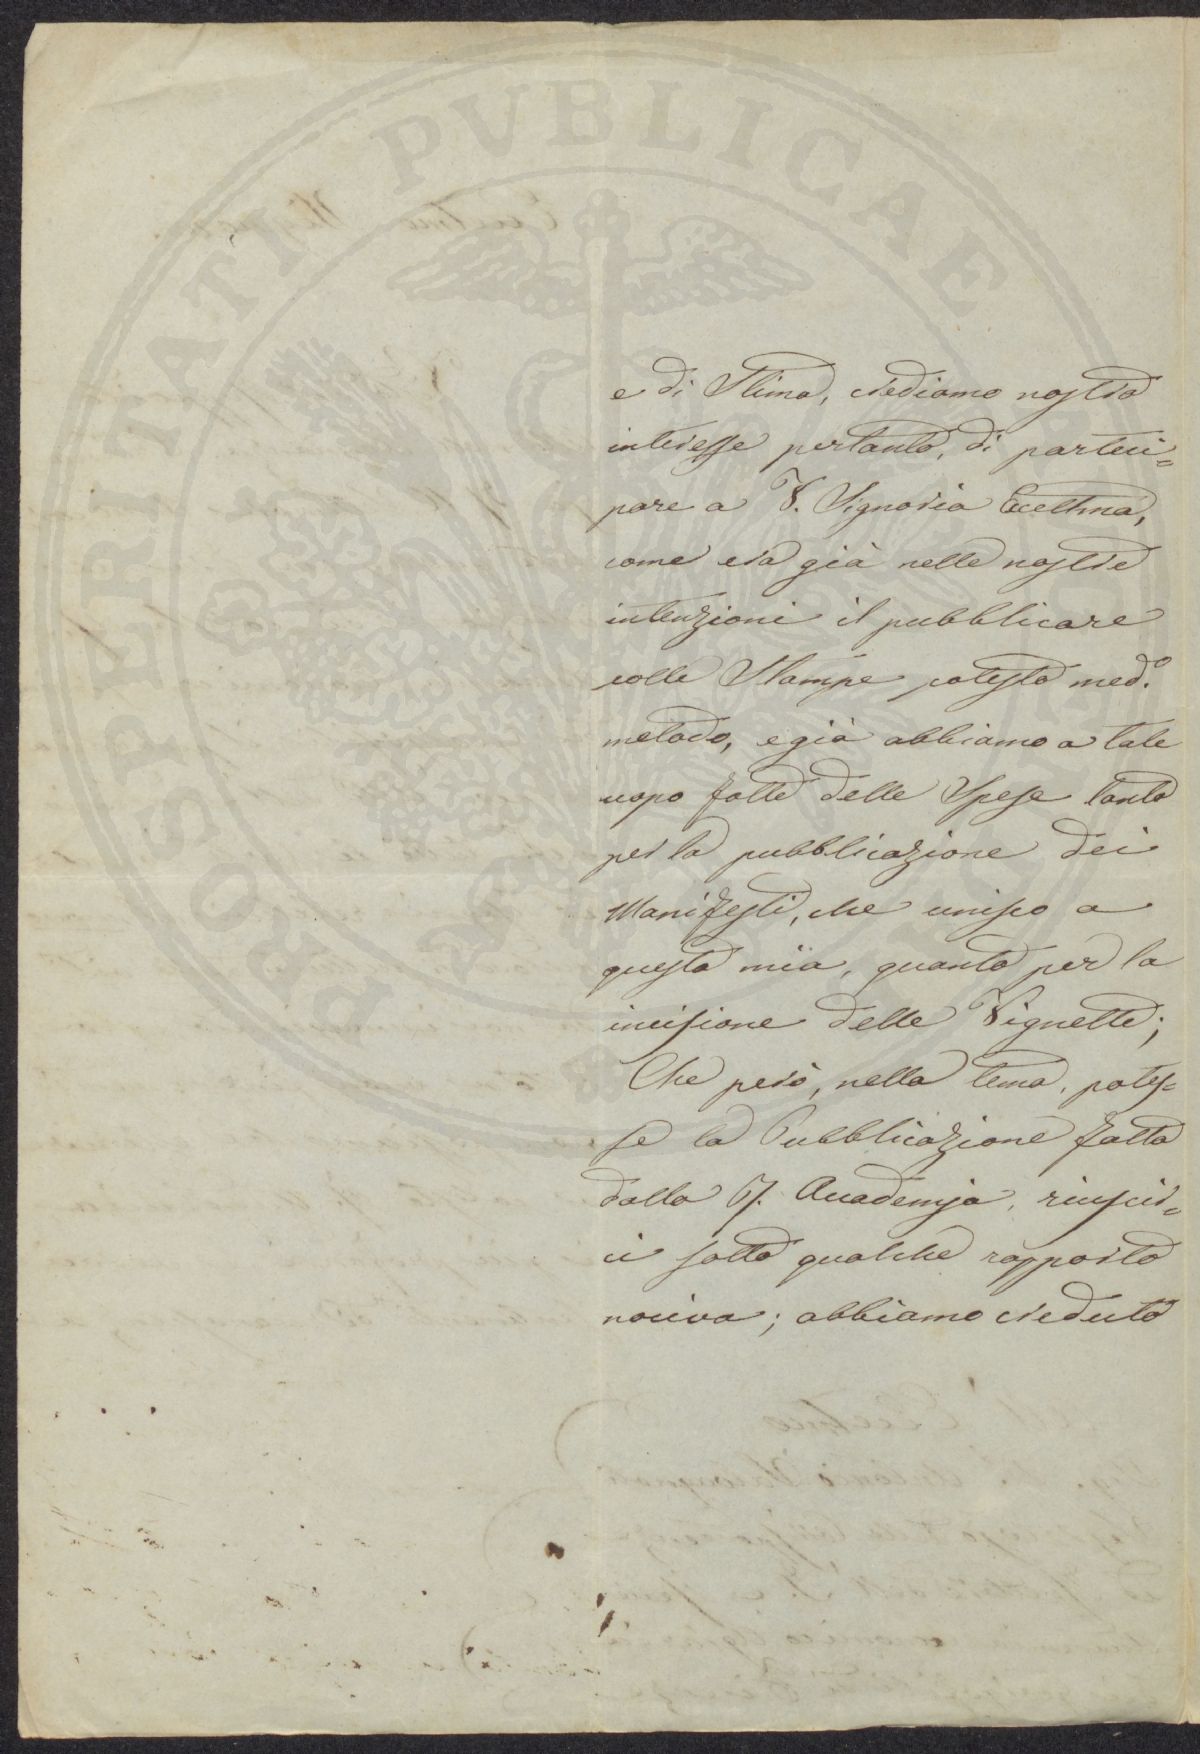 PROSPERITATI PVBLICAE
e di Stima, crediamo nostro
interesse pertanto, di parteci=
pare a V. Signoria Eccellma,
come era già nelle nostre
intenzioni il pubblicare
colle Stampe cotesto med.o
metodo, e già abbiamo a tale
uopo fatte delle Spese tanto
per la pubblicazione dei
Manifesti, che unisco a
questa mia, quanto per la
incisione delle Vignette;
Che però, nella tema, potes=
se la Pubblicazione fatta
dalla Accademia, riuscir=
ci sotto qualche rapporto
nociva; abbiamo creduto